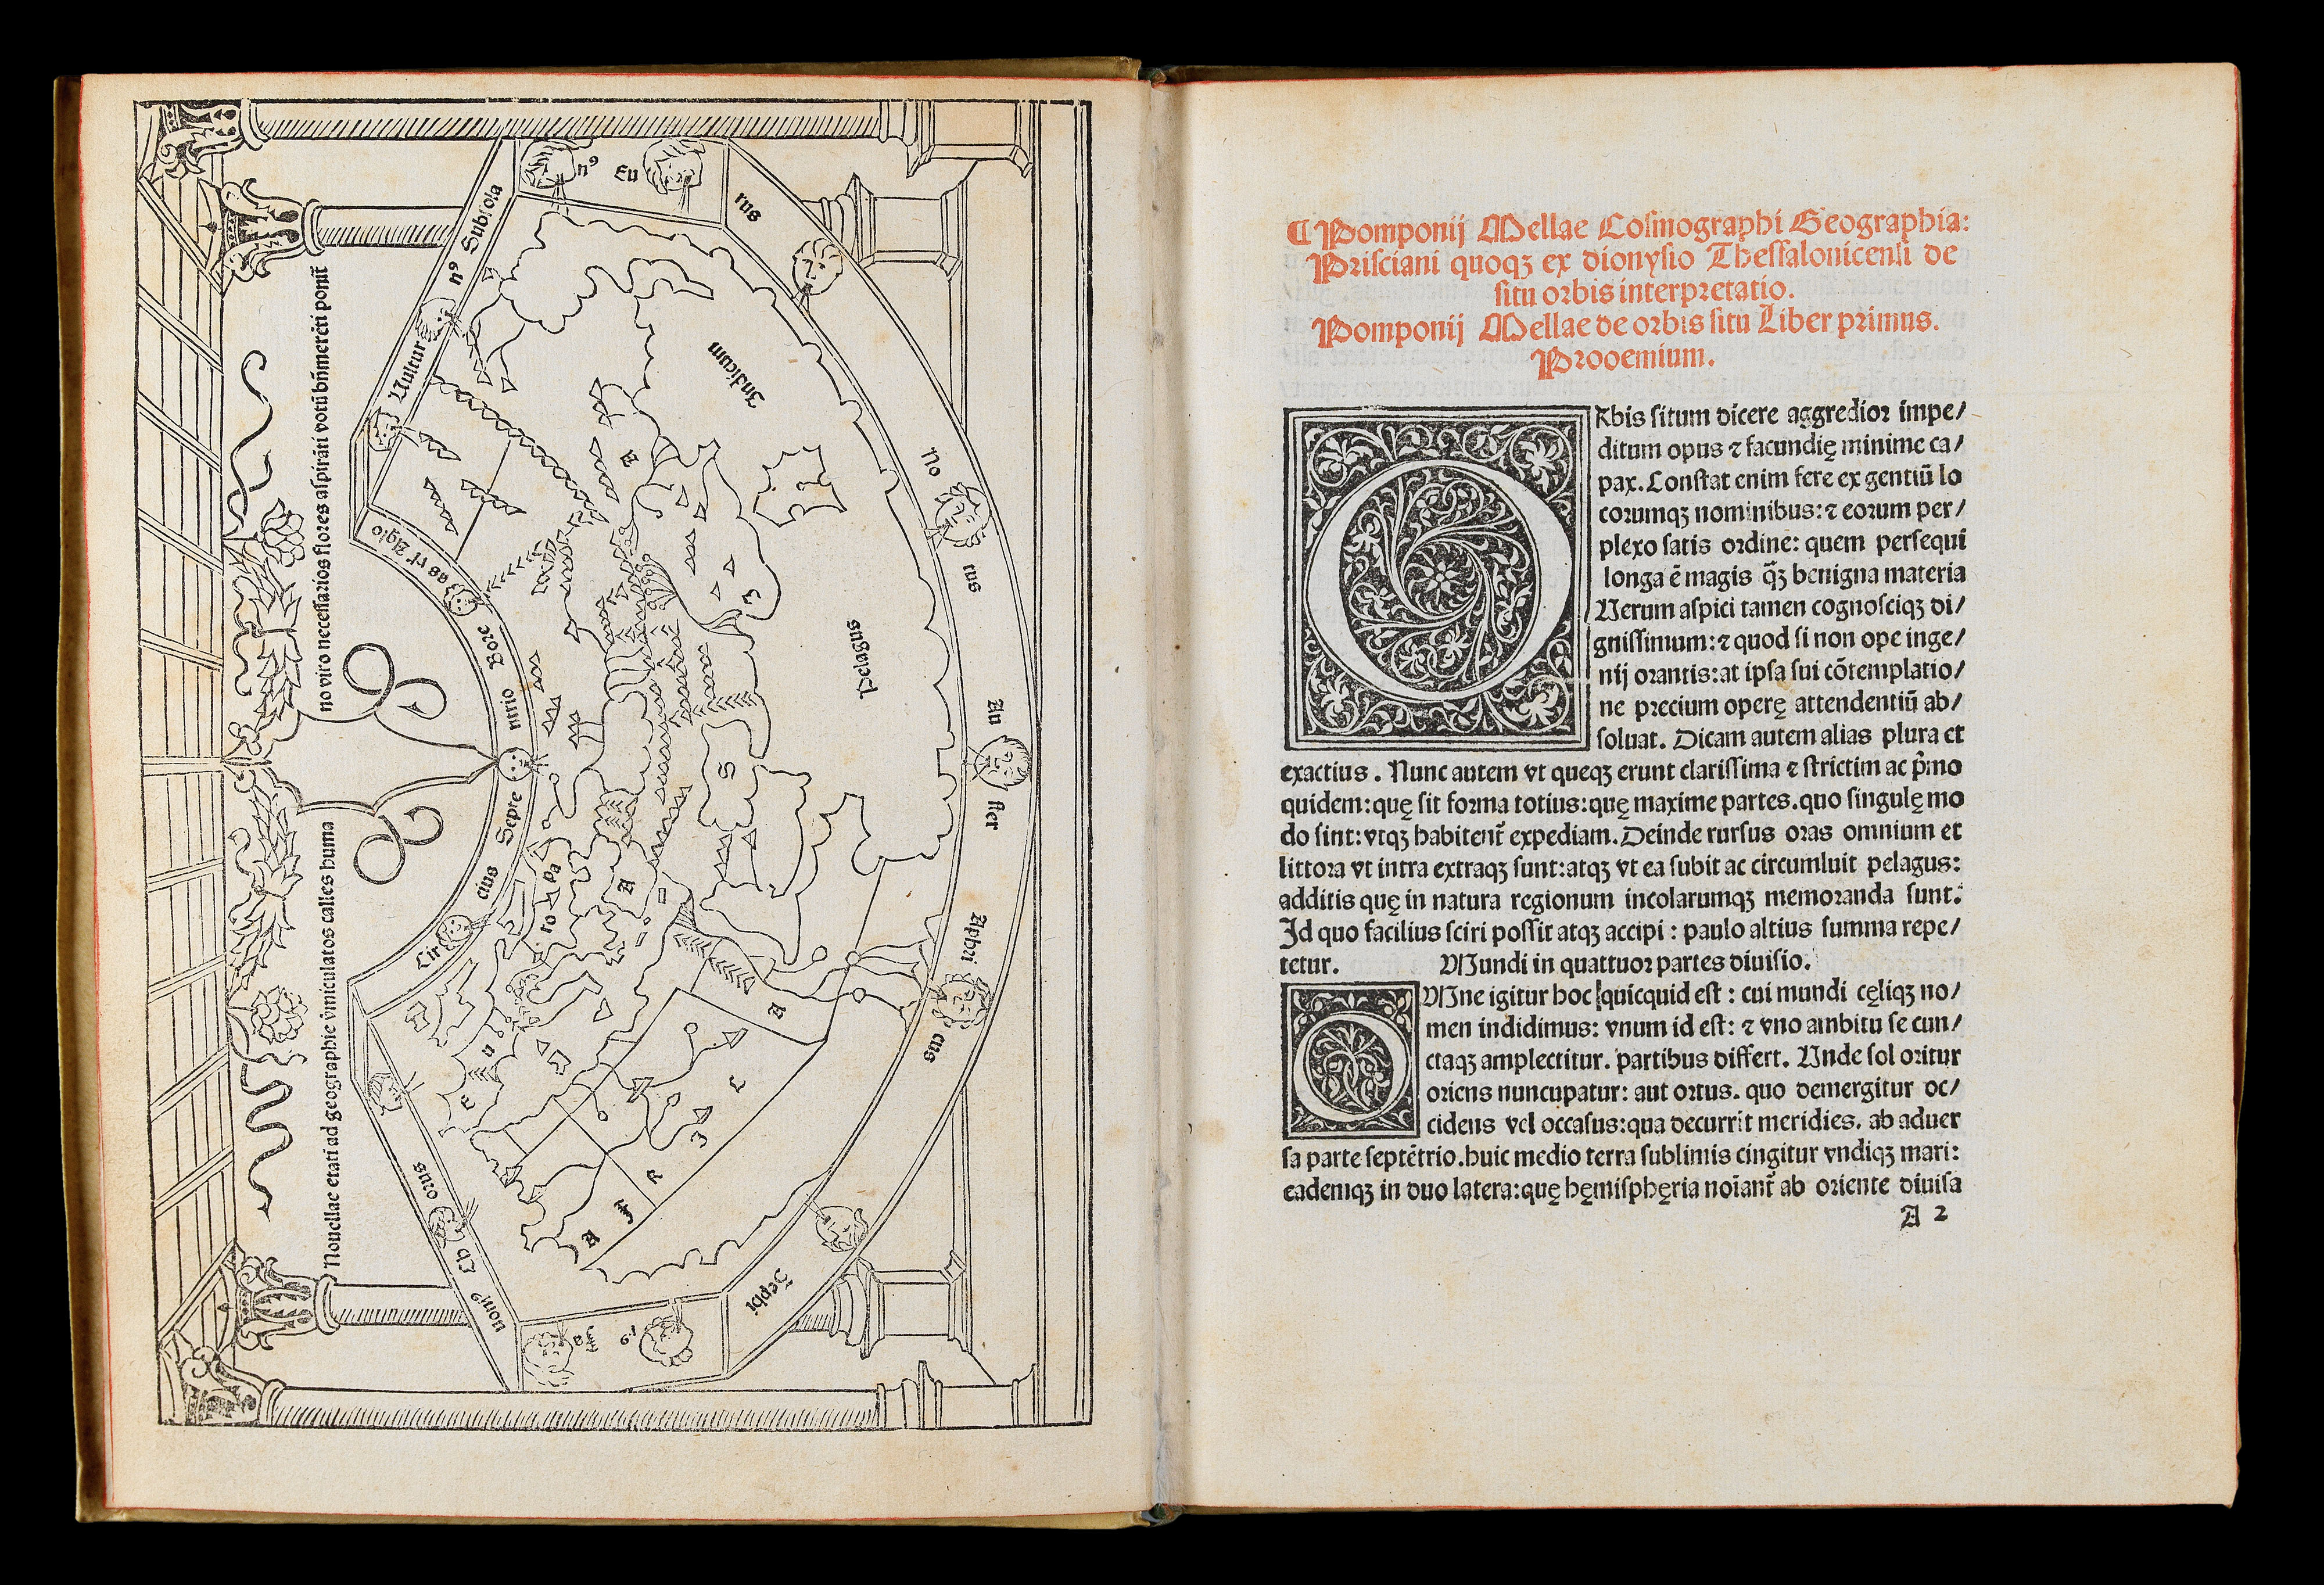 Nouellae etati ad geographie vmiculatos calles huma
no viro necessarios flores aspirāti votū bn̄merēti ponit̄
n9 Subsola
Uultur
as ut Aqlo
Bore
ntrio
Septe
cius
Circ
orus
Ch
uon9
Fa
l9
Zephi
cus
Aphri
ster
Au
tus
No
rus
Eu
n9
Indicum
Pelagus
A
S
J
A
E
u
ro
pa
A
F
R
J
C
A
¶ Pomponij Mellae Cosmographi Geographia:
Prisciani quoqꝫ ex dionysio Thessalonicensi de
situ orbis interpretatio.
Pomponij Mellae de orbis situ Liber primus.
Prooemium.
ORbis situm dicere aggredior impe/
ditum opus ⁊ facundię minime ca/
pax. Constat enim fere ex gentiū lo
corumqꝫ nominibus: ⁊ eorum per/
plexo satis ordine: quem persequi
longa ē magis q̄ꝫ benigna materia
Verum aspici tamen cognosciqꝫ di/
gnissimum: ⁊ quod si non ope inge/
nij orantis: at ipsa sui cōtemplatio/
ne precium operę attendentiū ab/
soluat. Dicam autem alias plura et
exactius. Nunc autem vt queqꝫ erunt clarissima ⁊ strictim ac p̄mo
quidem: quę sit forma totius: quę maxime partes. quo singulę mo
do sint: vtqꝫ habitent̄ expediam. Deinde rursus oras omnium et
littora vt intra extraqꝫ sunt: atqꝫ vt ea subit ac circumluit pelagus:
additis quę in natura regionum incolarumqꝫ memoranda sunt.
Id quo facilius sciri possit atqꝫ accipi: paulo altius summa repe/
tetur. Mundi in quattuor partes diuisio.
OMne igitur hoc quicquid est: cui mundi cęliqꝫ no/
men indidimus: vnum id est: ⁊ vno ambitu se cun/
ctaqꝫ amplectitur. partibus differt. Vnde sol oritur
oriens nuncupatur: aut ortus. quo demergitur oc/
cidens vel occasus: qua decurrit meridies. ab aduer
sa parte septētrio. huic medio terra sublimis cingitur vndiqꝫ mari:
eademqꝫ in duo latera: quę hęmisphęria noīant̄ ab oriente diuisa
A 2